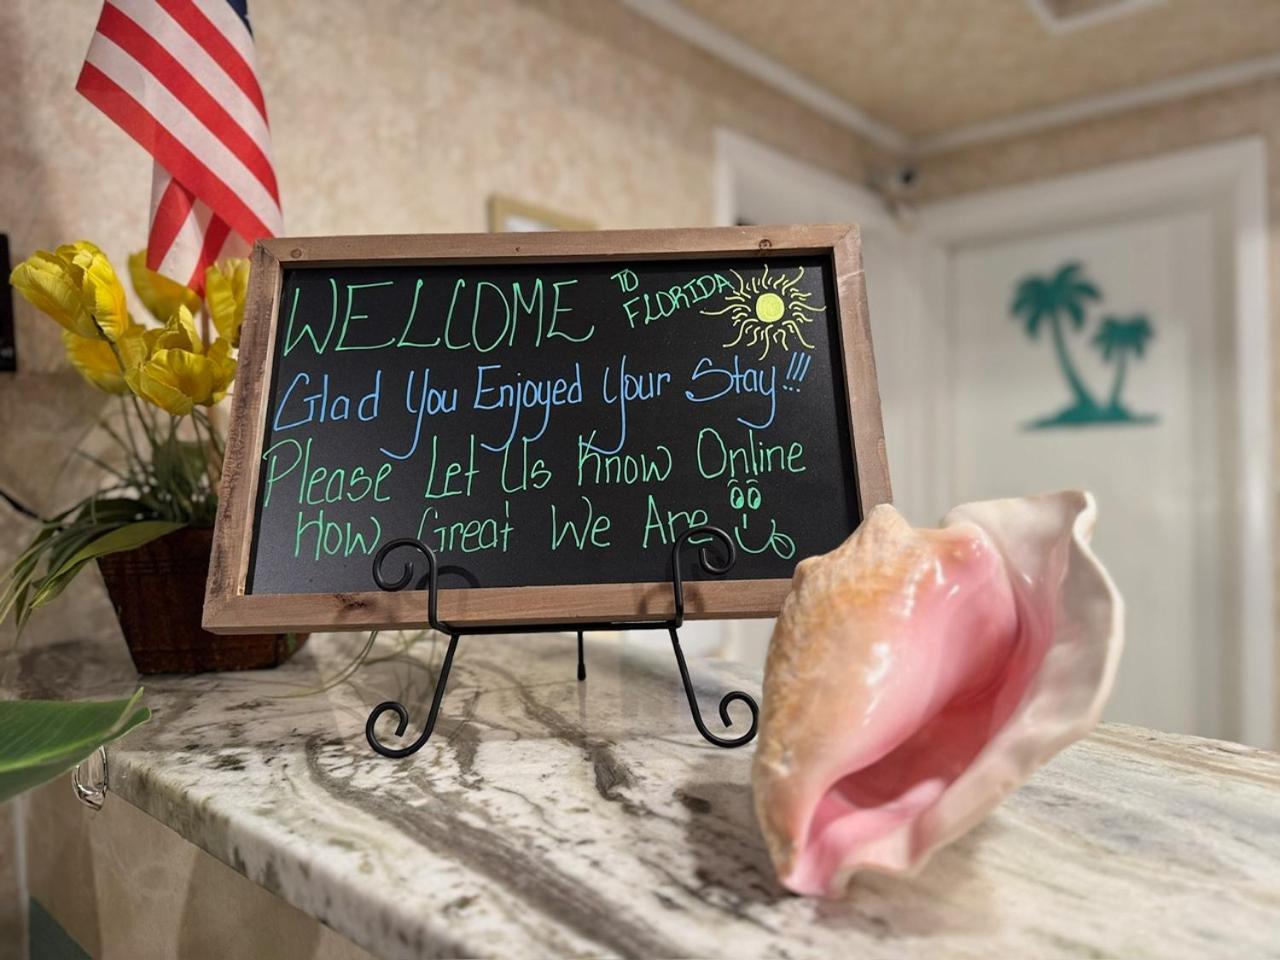 WELCOME TO FLORIDA
Glad You Enjoyed Your Stay!!!
Please Let Us Know Online
How Great We Are